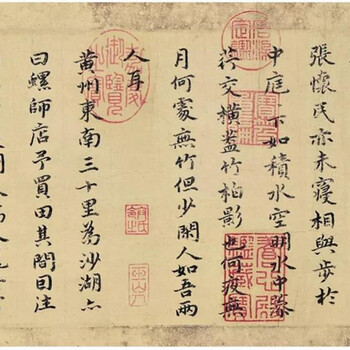 張懷民亦未寢相與步於
中庭下如積水空明水中藻
荇交橫蓋竹柏影也何夜無
月何處無竹但少閑人如吾兩
人耳
黃州東南三十里為沙湖亦
曰螺師店予買田其間因往